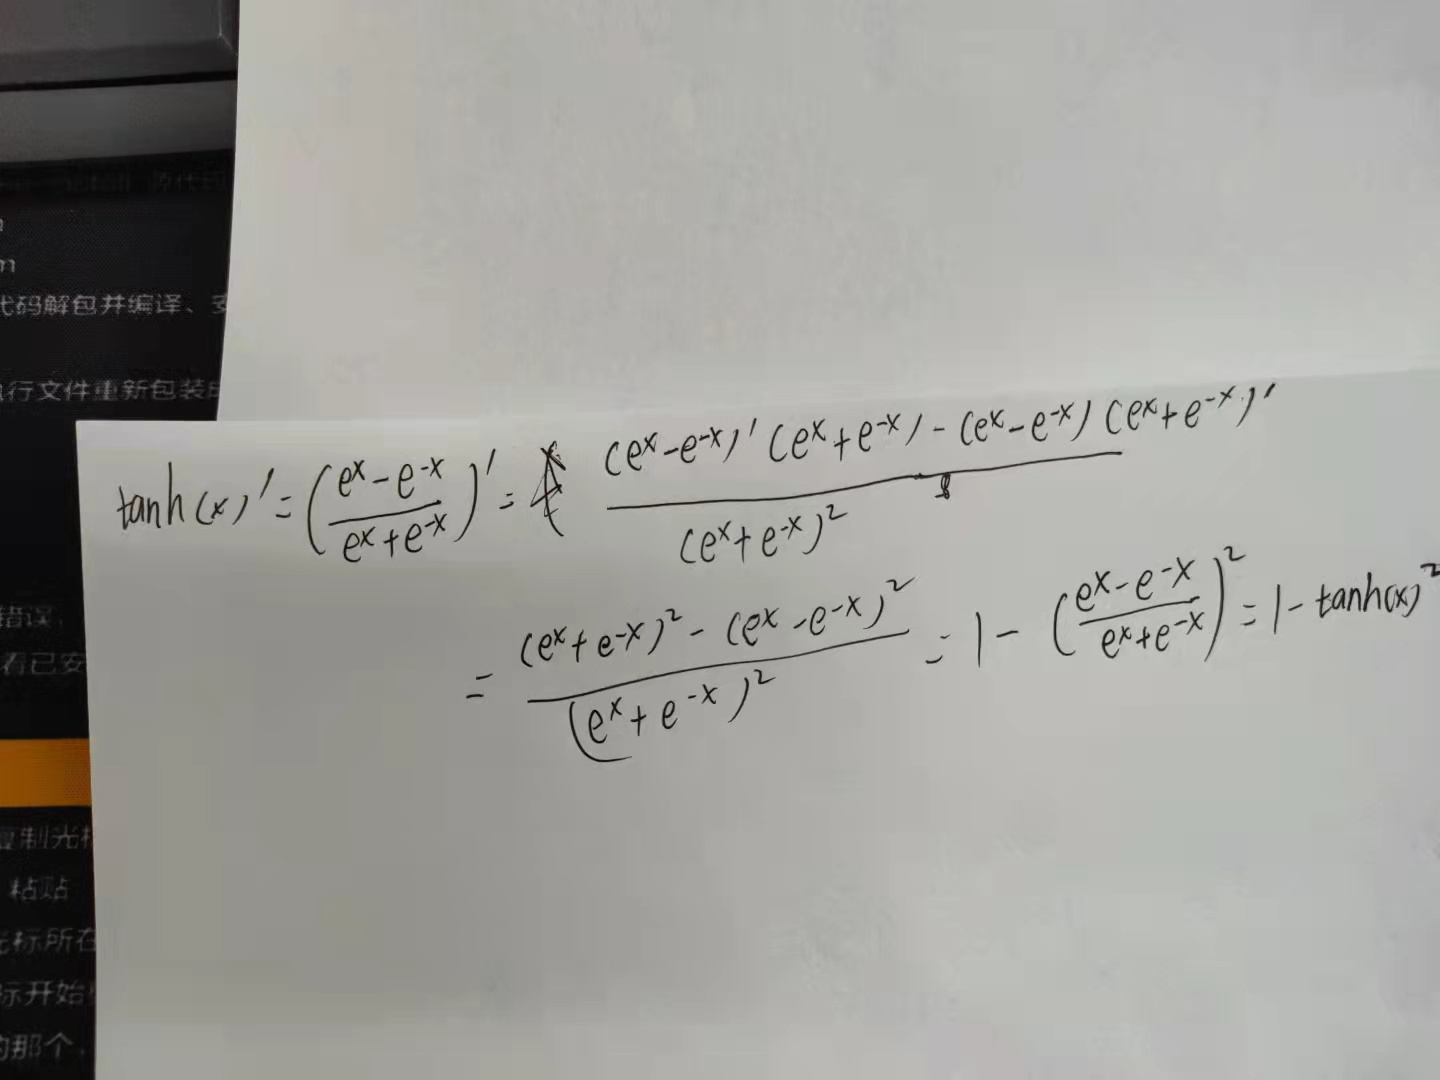 代码解包并编译、
行文件重新包装
错误
看已安
复制光
粘贴
光标所在
标开始
的那个
tanh(x)' = ( (e^x - e^-x) / (e^x + e^-x) )' = ( (e^x - e^-x)' (e^x + e^-x) - (e^x - e^-x) (e^x + e^-x)' ) / (e^x + e^-x)^2
= ( (e^x + e^-x)^2 - (e^x - e^-x)^2 ) / (e^x + e^-x)^2 = 1 - ( (e^x - e^-x) / (e^x + e^-x) )^2 = 1 - tanh(x)^2